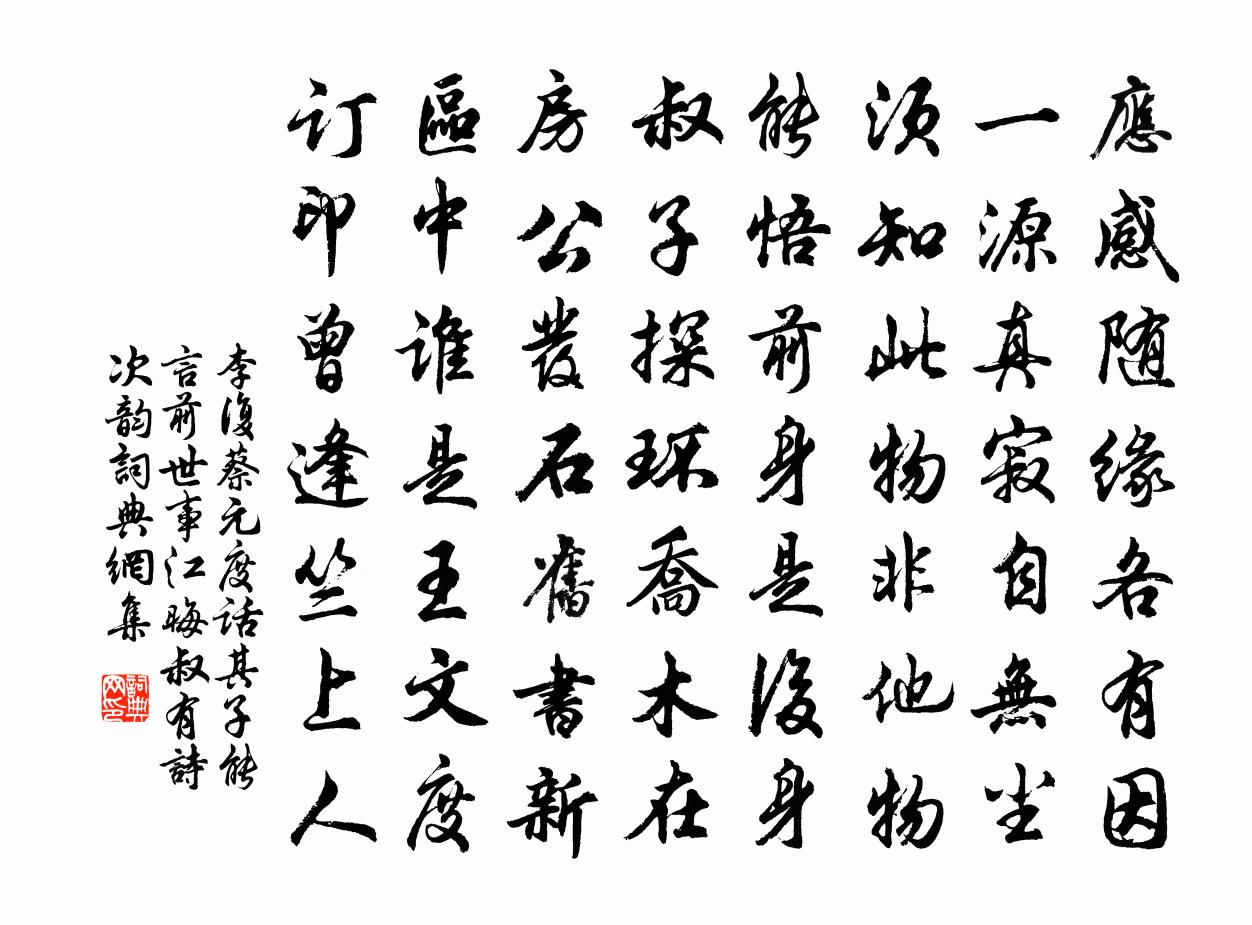 應感随缘各有因
一源真寂自無尘
須知此物非他物
能悟前身是後身
叔子探环喬木在
房公發石舊書新
區中谁是王文度
订印曾逢竺上人
李復蔡元度话其子能
言前世事江晦叔有詩
次韵詞典網集
詞典
网印